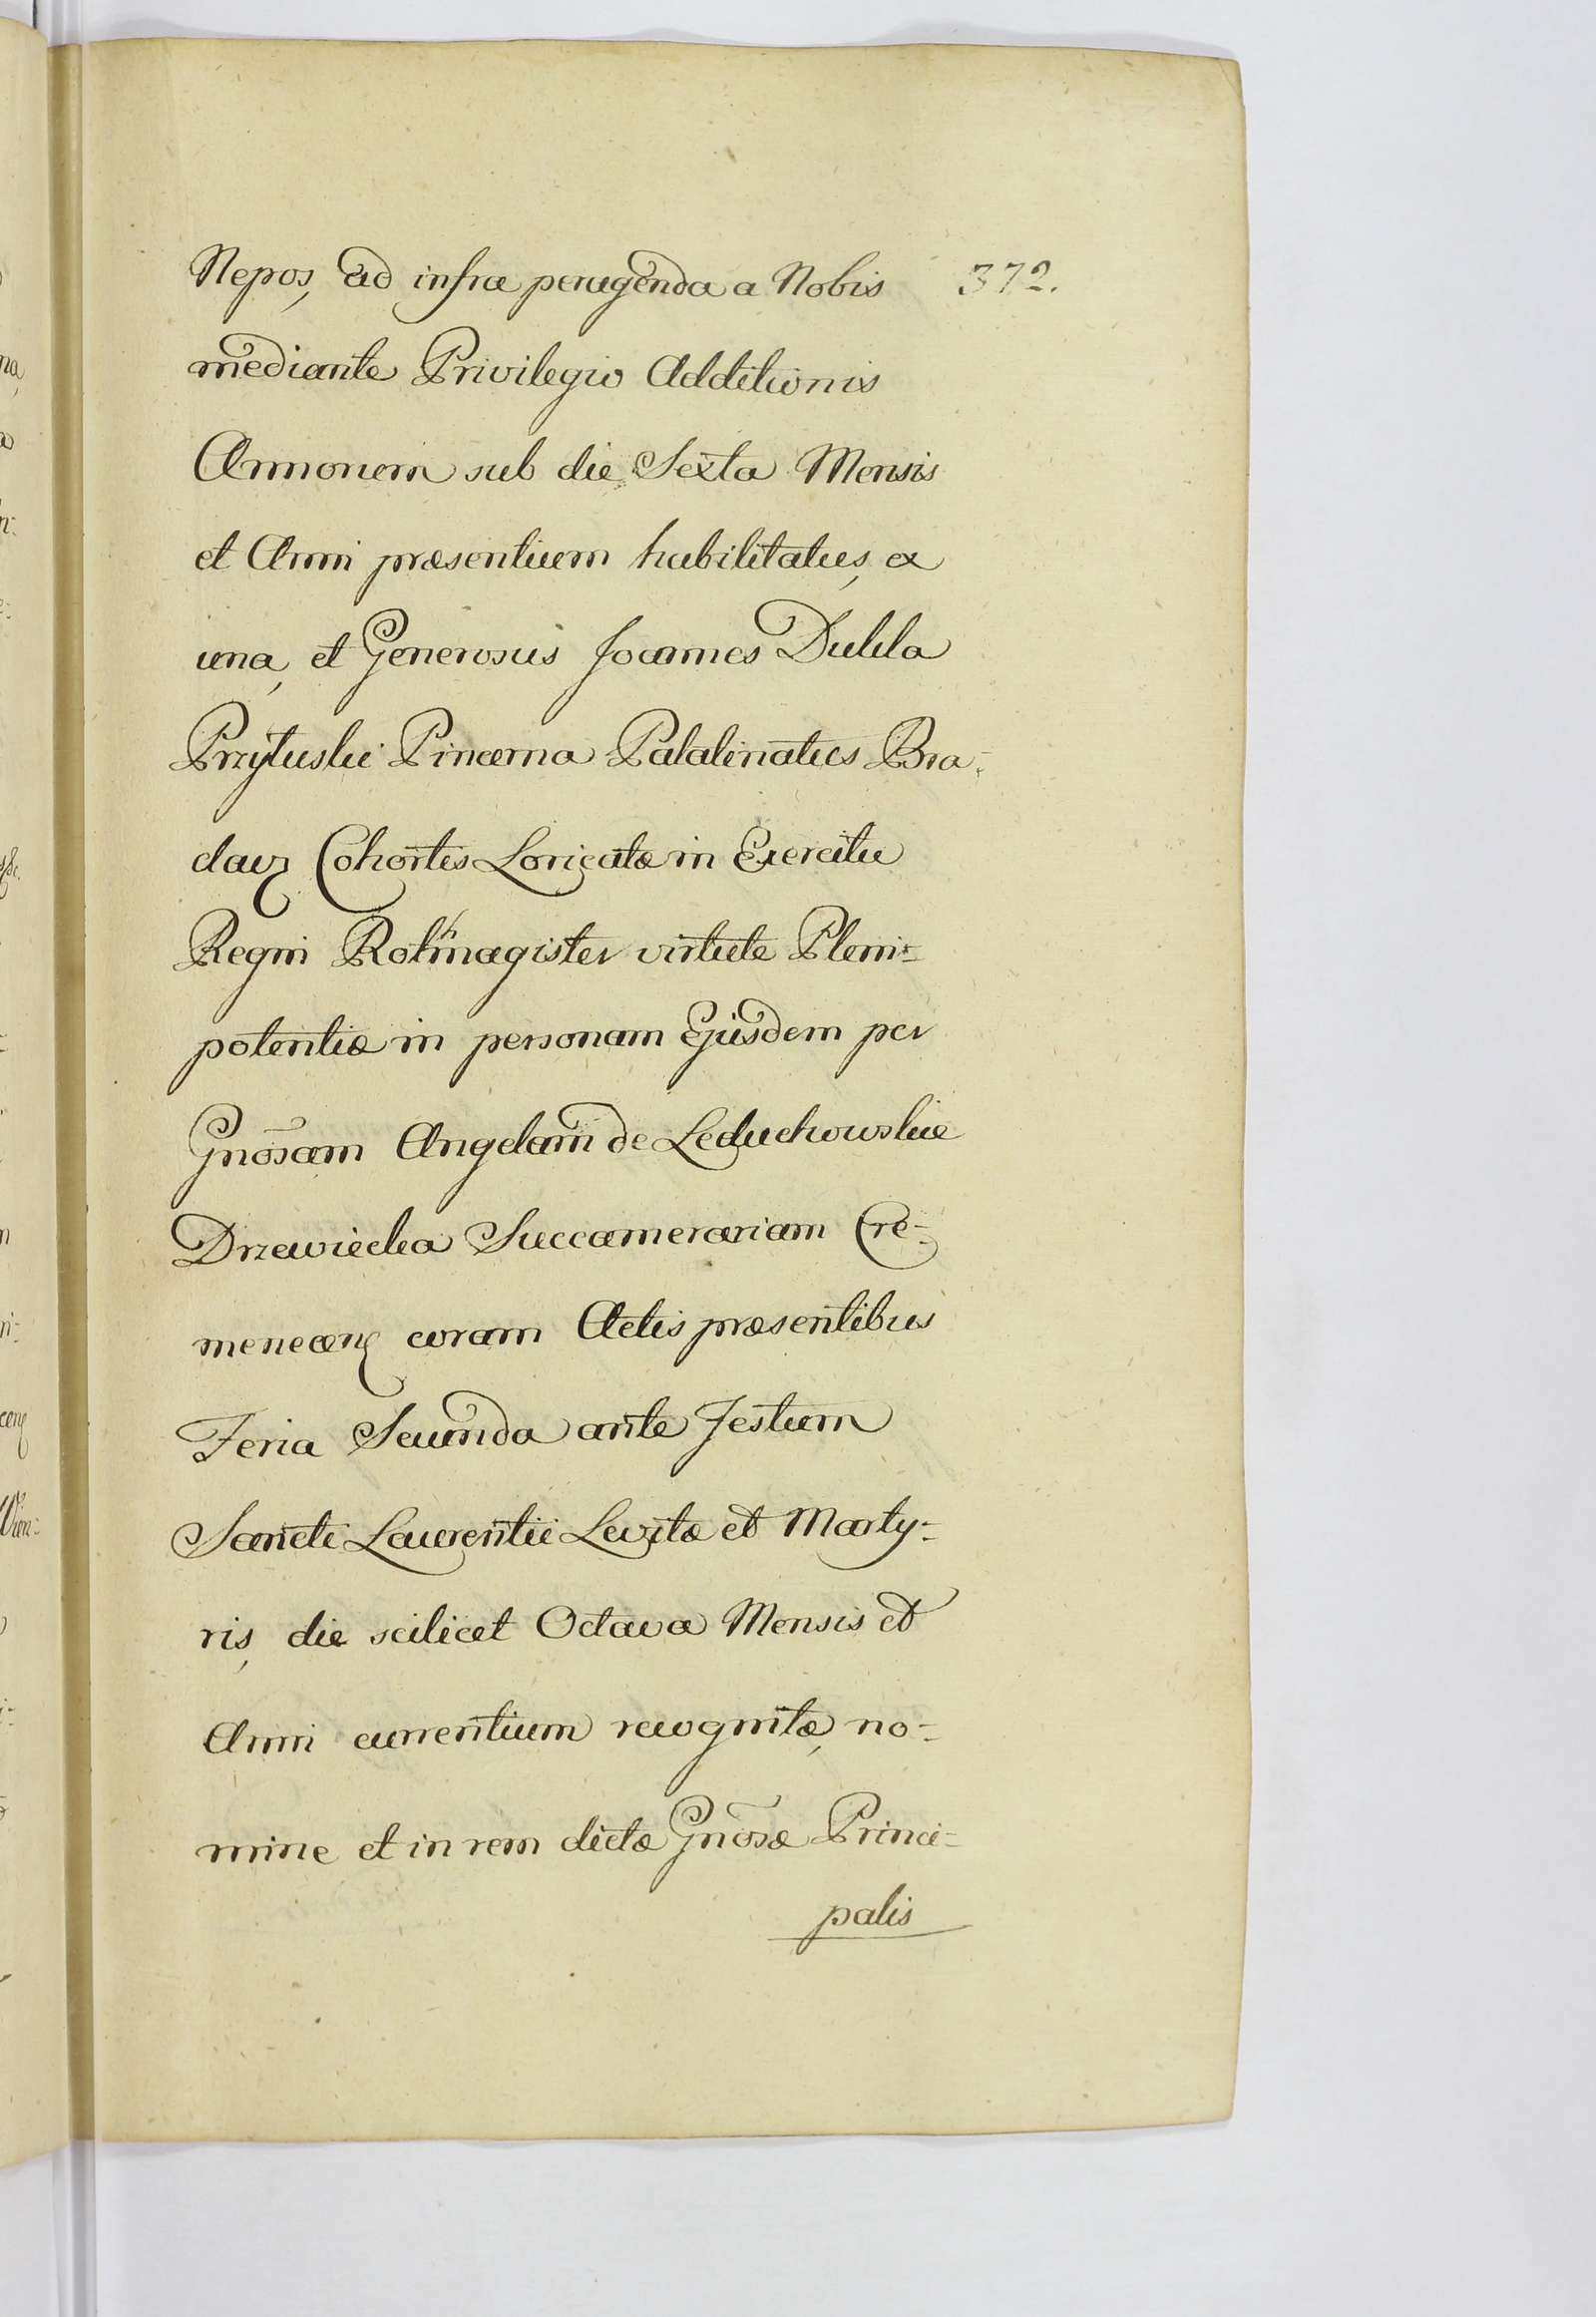 Nepos, ad infra peragenda a Nobis 372.
mediante Privilegio Additionis
Annorum sub die Sexta Mensis
et Anni præsentium habilitatus, ex
una, et Generosus Joannes Dukla
Przyłuski Pincerna Palatinatus Bra-
clav Cohortis Loricatæ in Exercitu
Regni Rothmagister virtute Pleni-
potentiæ in personam Ejusdem per
Gnosam Angelam de Leduchowskie
Drzewiecka Succamerariam Cre-
menecen coram Actis præsentibus
Feria Secunda ante Festum
Sancti Laurentii Levitæ et Marty-
ris, die scilicet Octava Mensis et
Anni currentium recognitæ, no-
mine et in rem dictæ Gnosæ Princi-
palis